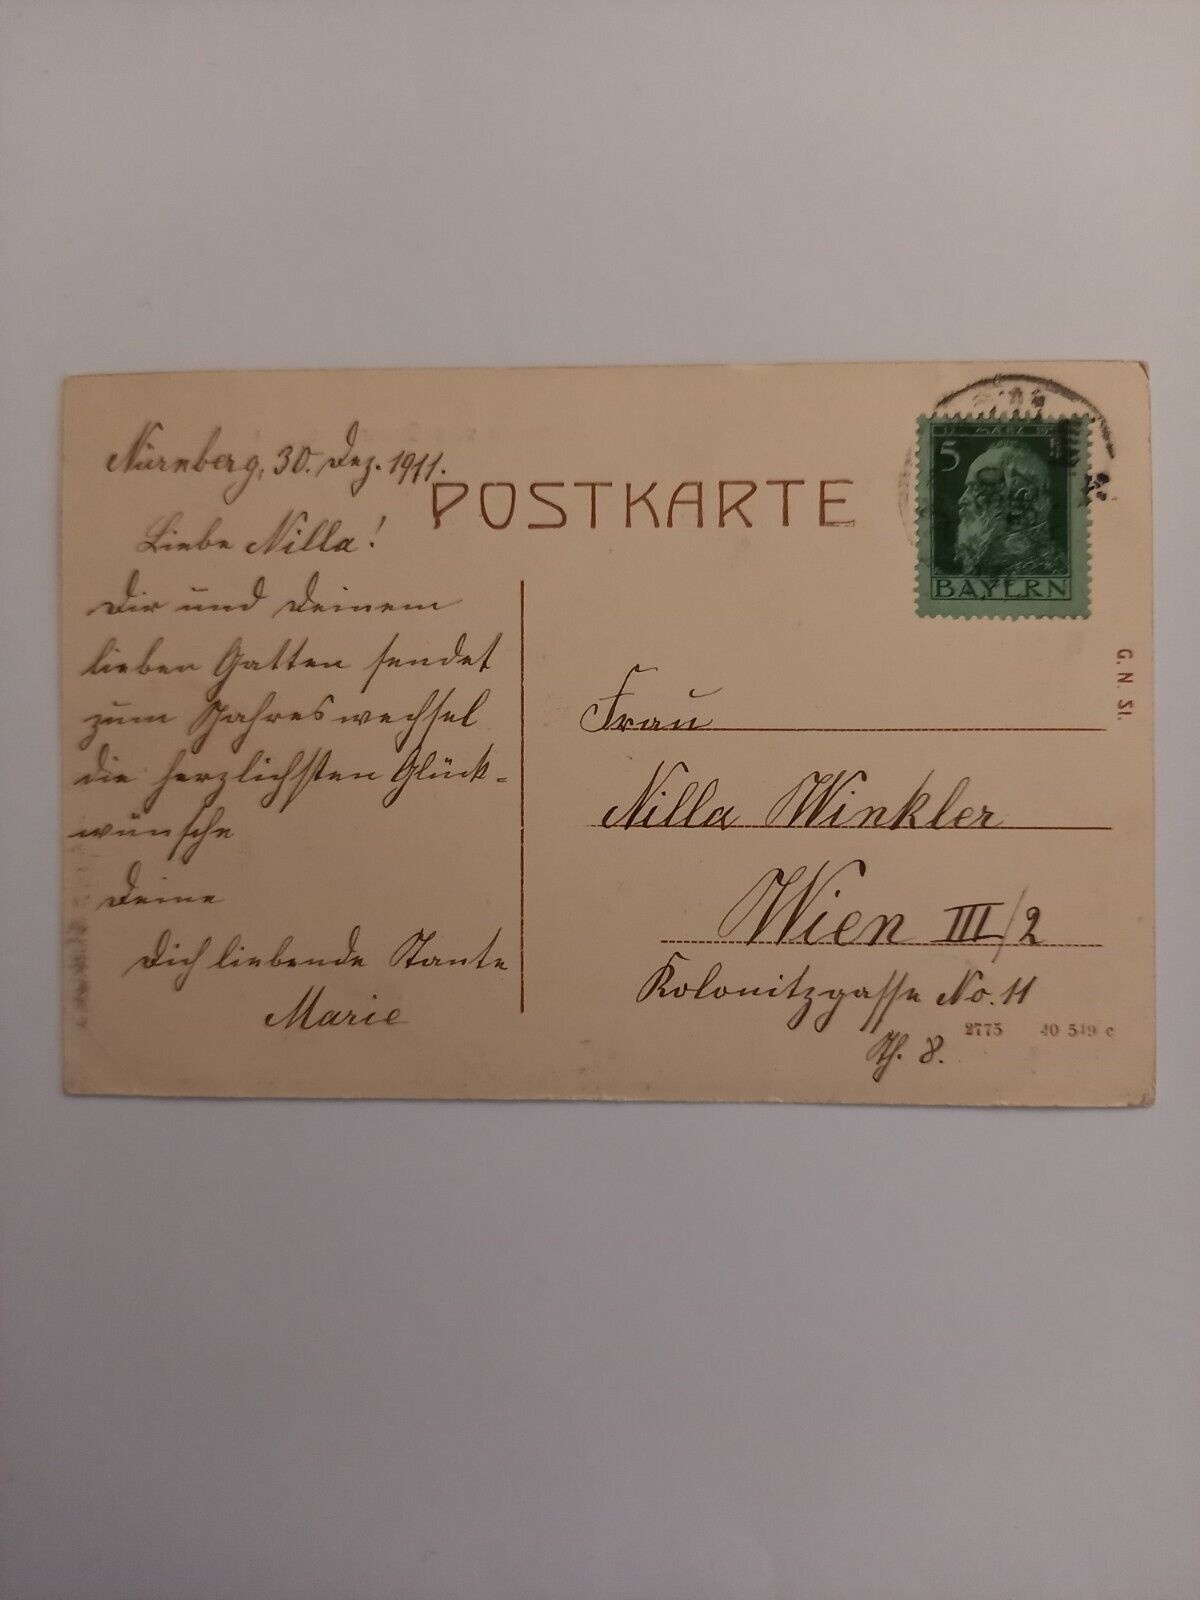 Nürnberg, 30. Dez. 1911.
Liebe Nilla!
Dir und Deinem
lieben Gatten sendet
zum Jahreswechsel
die herzlichsten Glück-
wünsche
Deine
Dich liebende Tante
Marie
POSTKARTE
5
BAYERN
G. N. SI.
Frau
Nilla Winkler
Wien III/2
Kolonitzgasse No. 11
Th. 8.
2775 40 549 c